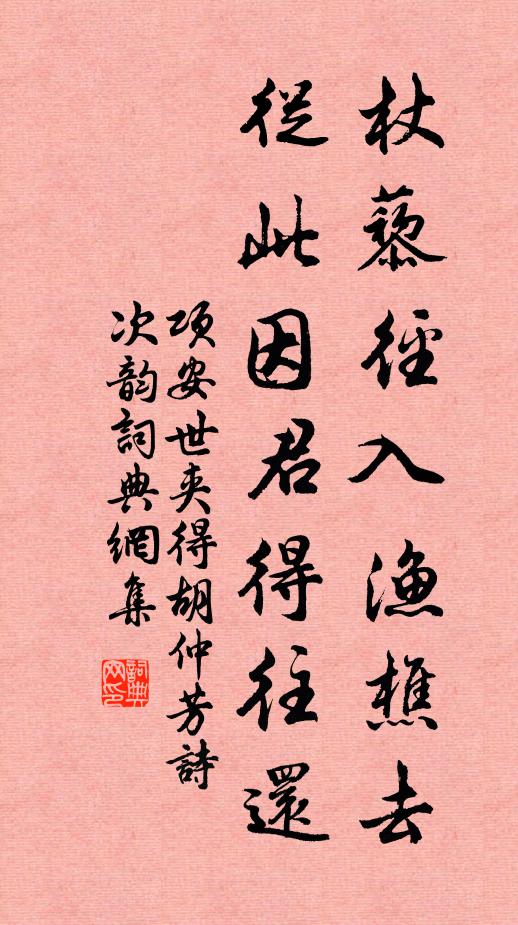 杖藜徑入漁樵去
從此因君得往還
項安世夾得胡仲芳詩
次韵詞典網集
詞典
网印